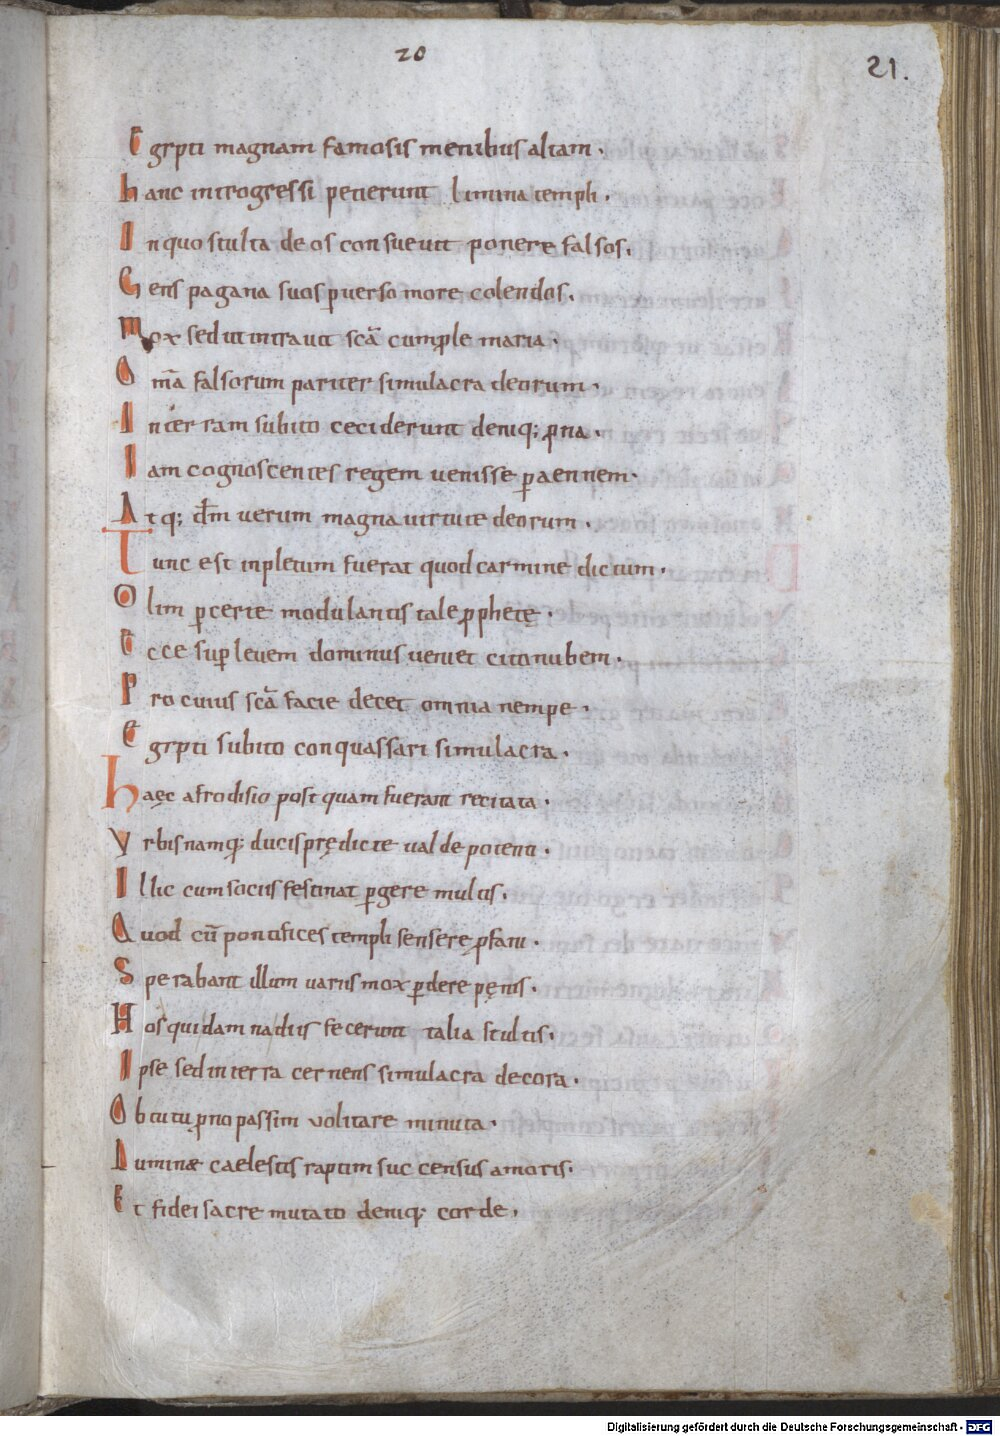 20
21.
Egypti magnam famosis menibus altam.
hanc introgressi petierunt limina templi.
In quo stulta deos consuevit ponere falsos.
Gens pagana suos pverso more colendos.
mox sed ut intravit scā cum ple maria.
Omīa falsorum pariter simulacra deorum.
In terram subito ceciderunt deniq; pna.
Iam cognoscentes regem venisse paennem.
Atq; dm verum magna virtute deorum.
Tunc est inpletum fuerat quod carmine dictum.
Olim pcerte modulantis tale pphetę.
Ecce sup levem dominus veniet cito nubem.
Pro cuius scā facie decet omnia nempe.
Egypti subito conquassari simulacra.
haęc afrodisio postquam fuerant recitata.
Vrbis namq; ducis prędicte valde potenti.
Illic cum sociis festinat pgere multis.
Quod cū pontifices templi sensere pfani.
Sperabant illum variis mox pdere pęnis.
Hos quidam na diis fecerunt talia stultis.
Ipse sed in terra cernens simulacra decora.
Obtutu pno passim volitare minuta.
Luminæ caelestis raptim succensus amoris.
Et fidei sacre mutato deniq; corde.
Digitalisierung gefördert durch die Deutsche Forschungsgemeinschaft - DFG